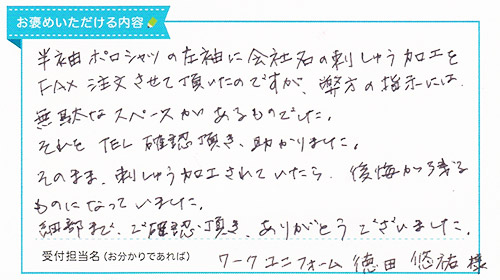 お褒めいただける内容
半袖ポロシャツの左袖に会社名の刺しゅう加工を
FAX注文させて頂いたのですが、弊方の指示には、
無駄なスペースがあるものでした。
それを TEL確認頂き、助かりました。
そのまま、刺しゅう加工されていたら、後悔が残る
ものになっていました。
細部まで、ご確認頂き、ありがとうございました。
受付担当名(お分かりであれば)
ワークユニフォーム 徳田 悠祐 様